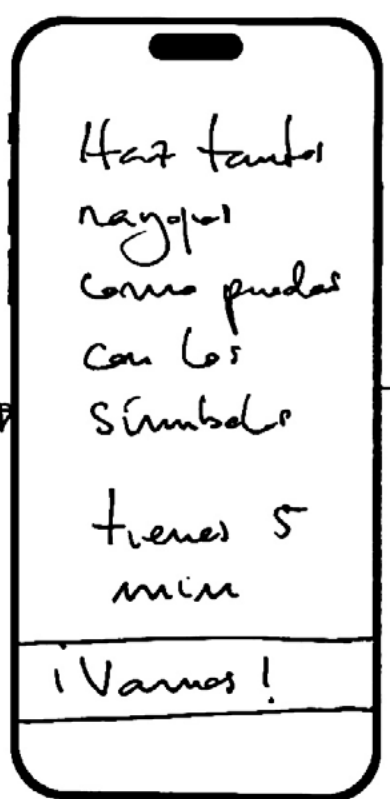 Haz tantos
como puedas
con los
símbolos
tienes 5
min
¡Vamos!